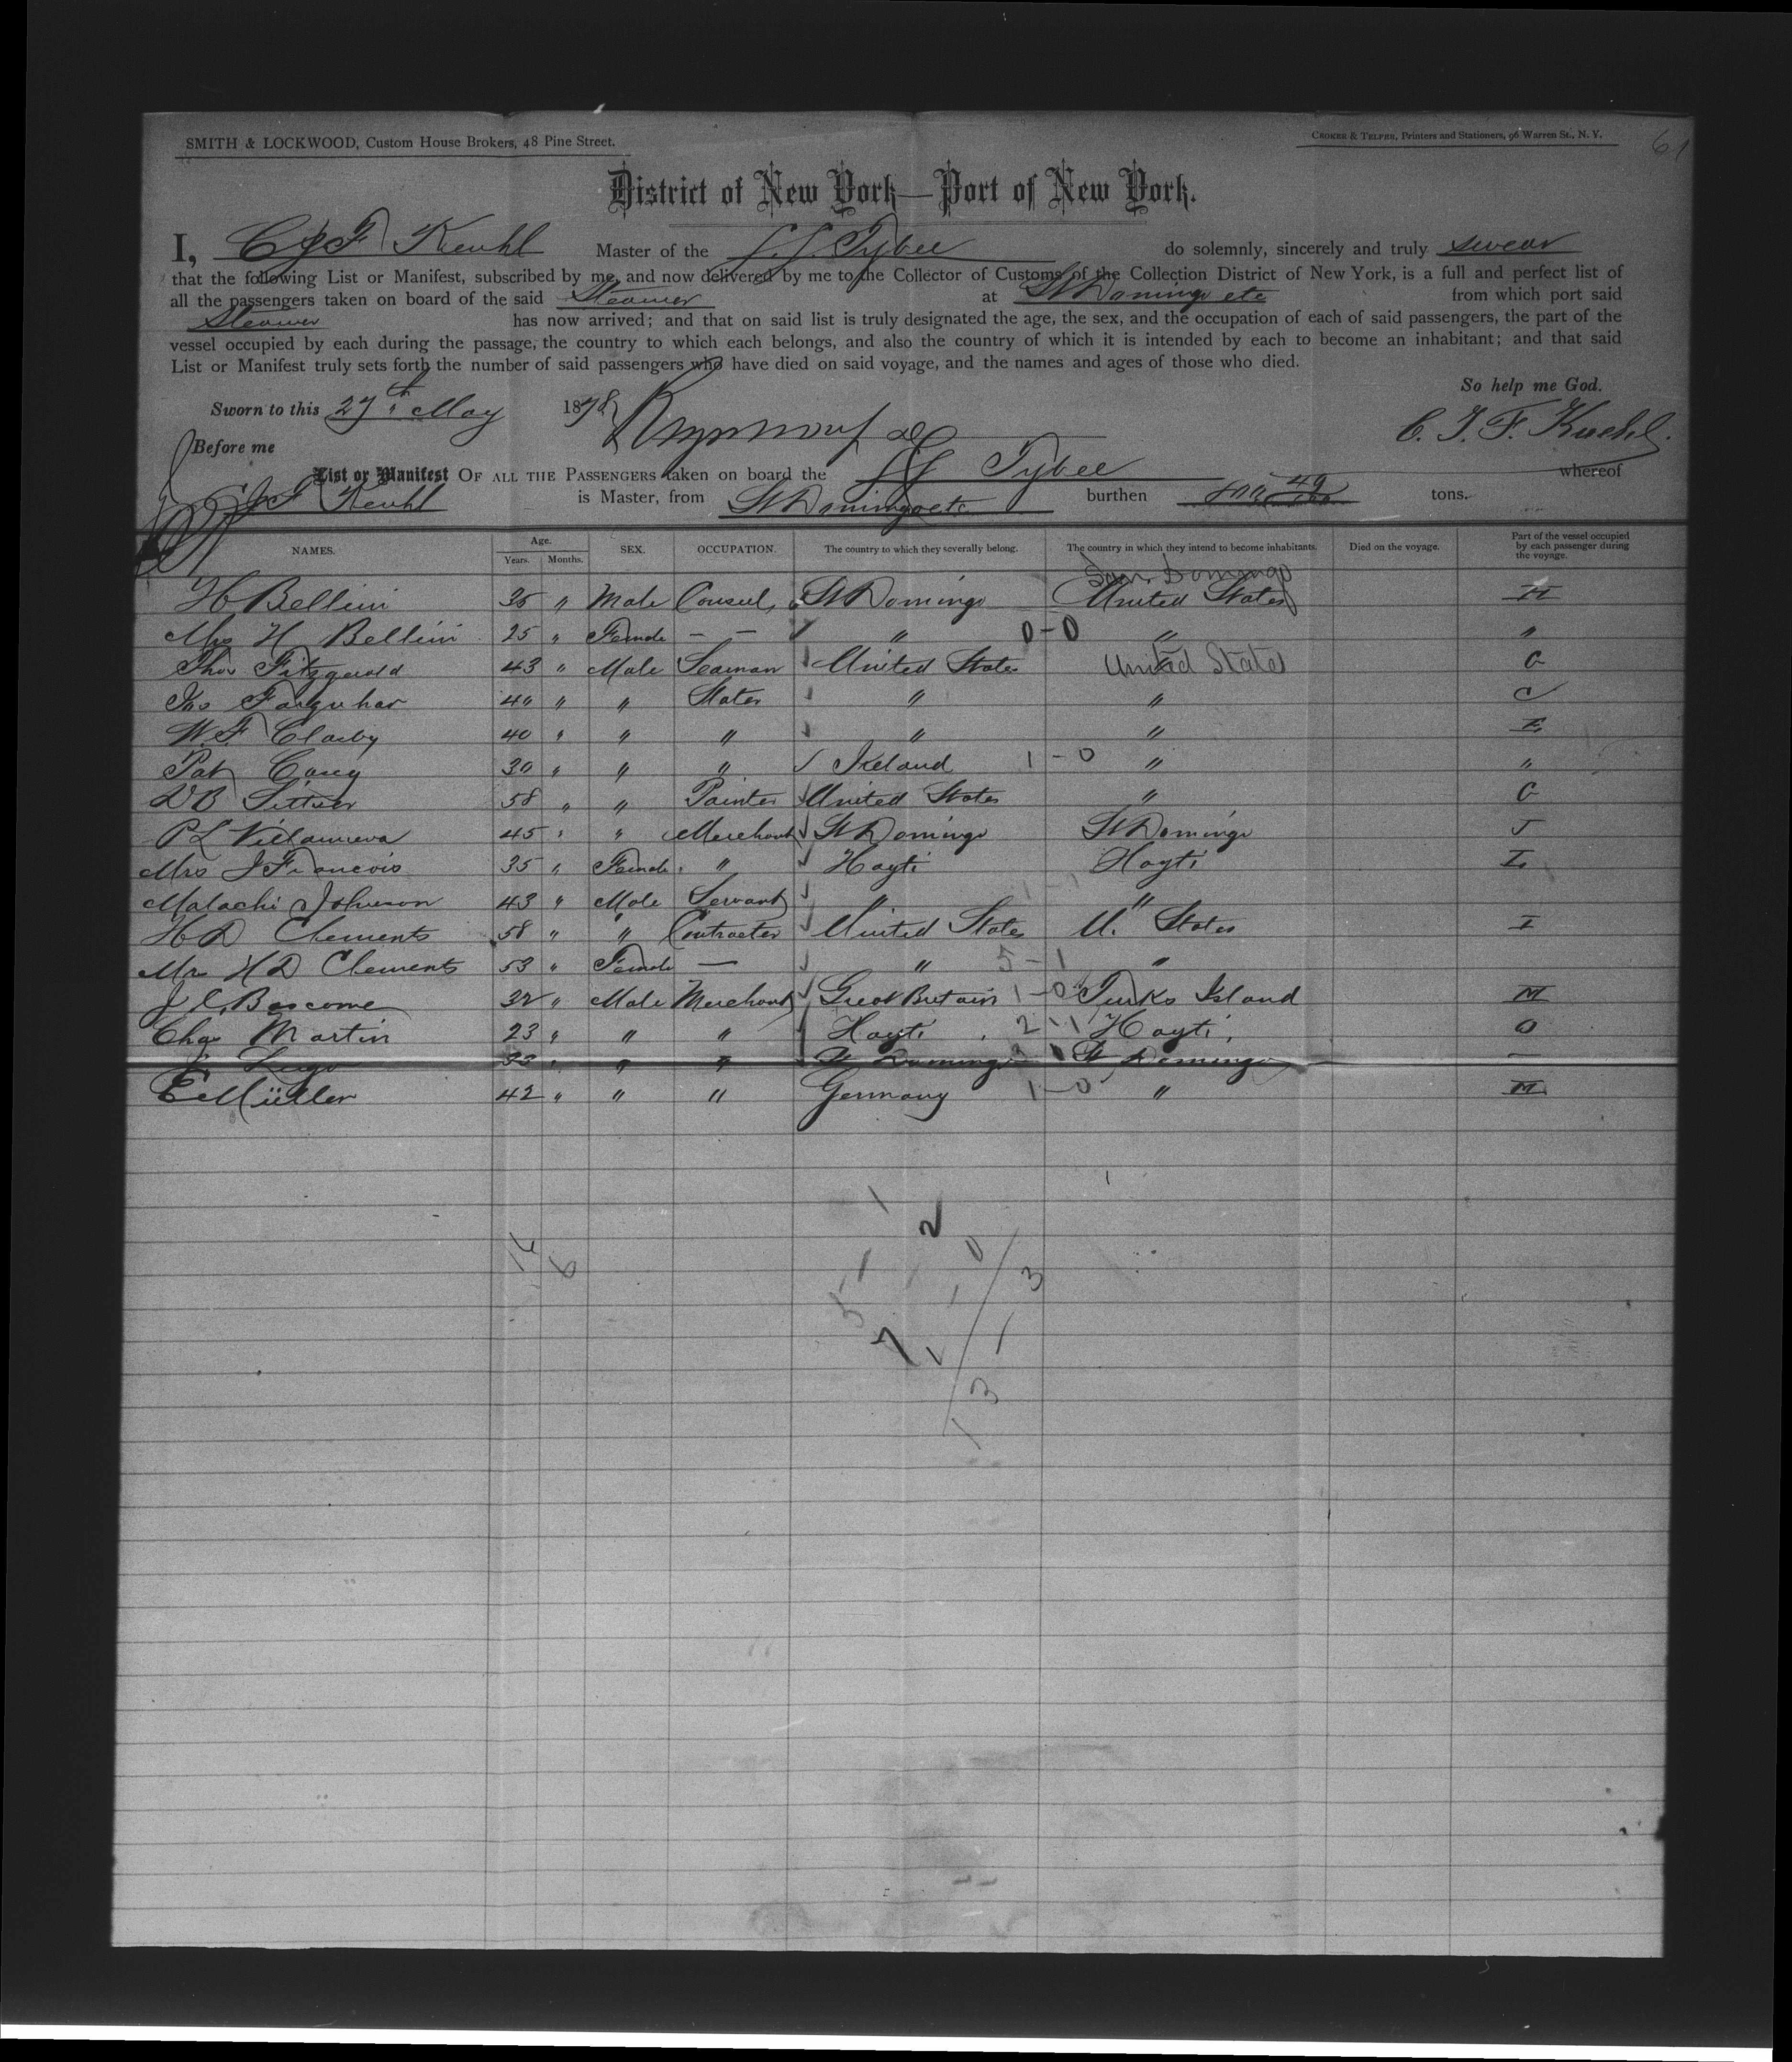 SMITH & LOCKWOOD, Custom House Brokers, 48 Pine Street.
CROKER & TELFER, Printers and Stationers, 96 Warren St., N. Y.
61
District of New York—Port of New York.
I, C J F Keuhl Master of the S.S. Tybee do solemnly, sincerely and truly swear
that the following List or Manifest, subscribed by me, and now delivered by me to the Collector of Customs of the Collection District of New York, is a full and perfect list of
all the passengers taken on board of the said Steamer at St Domingo etc from which port said
Steamer has now arrived; and that on said list is truly designated the age, the sex, and the occupation of each of said passengers, the part of the
vessel occupied by each during the passage, the country to which each belongs, and also the country of which it is intended by each to become an inhabitant; and that said
List or Manifest truly sets forth the number of said passengers who have died on said voyage, and the names and ages of those who died.
So help me God.
Sworn to this 27th May 1878
C. J. F. Kuehl.
Before me
List or Manifest OF ALL THE PASSENGERS taken on board the SS Tybee whereof
C J F Keuhl is Master, from St Domingo etc burthen tons.
NAMES. Age. Years. Months. SEX. OCCUPATION. The country to which they severally belong. The country in which they intend to become inhabitants. Died on the voyage. Part of the vessel occupied by each passenger during the voyage.
San Domingo
H Bellini 35 " Male Consul St Domingo United States H
Mrs H Bellini 25 " Female — — " 0-0 " "
Thos Fitzgerald 43 " Male Seaman United States United States G
Jno Farquhar 40 " " Slater " " C
W. F. Clarby 40 " " " " " E
Pat Carey 30 " " " Ireland 1-0 " "
D B Sittser 58 " " Painter United States " G
P L Villanueva 45 " " Merchant St Domingo St Domingo J
Mrs J Francois 35 " Female " Hayti Hayti L
Malachi Johnson 43 " Male Servant " 1-1 "
H D Clements 58 " " Contractor United States U. States I
Mrs H D Clements 53 " Female — " 5-1 "
J C Bascome 32 " Male Merchant Great Britain 1-0 Turks Island M
Chas Martin 23 " " " Hayti 2-1 Hayti, O
J Lugo 33 " " " St Domingo St Domingo —
E Müller 42 " " " Germany 1-0 " M